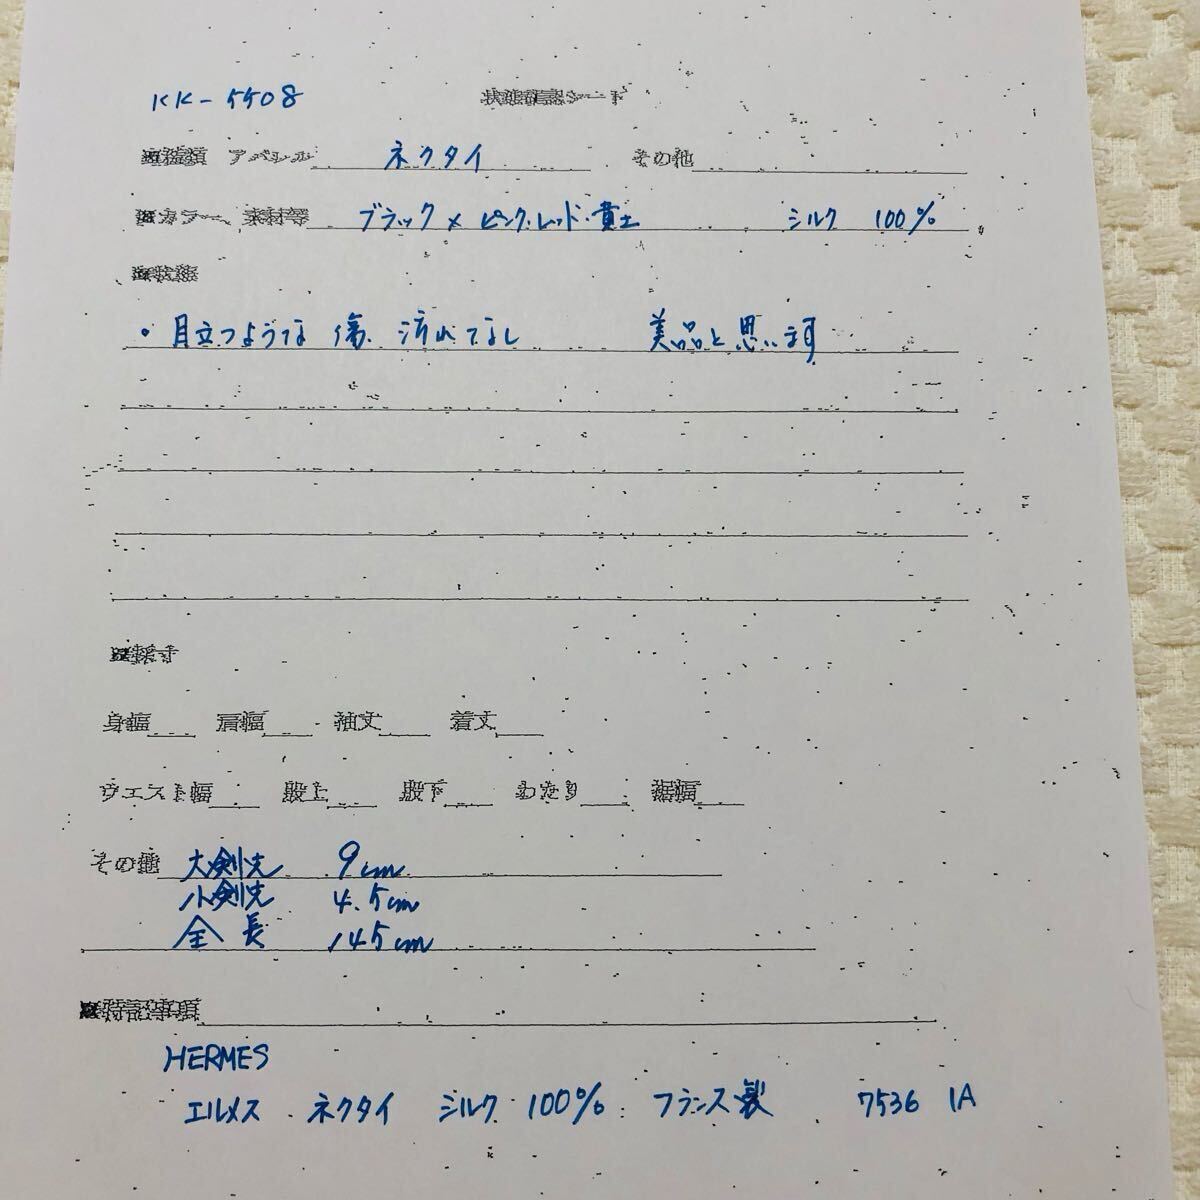 KK-5508 状態確認シート
※種類 アパレル ネクタイ その他
※カラー、素材等 ブラック×ピンク・レッド・黄土 シルク 100%
※状態
・目立つような 傷、汚れてなし 美品と思います
※採寸
身幅 肩幅 袖丈 着丈
ウエスト幅 股上 股下 わたり 裾幅
その他 大剣先 9cm
小剣先 4.5cm
全長 145cm
※特記事項
HERMES
エルメス ネクタイ シルク 100% フランス製 7536 IA